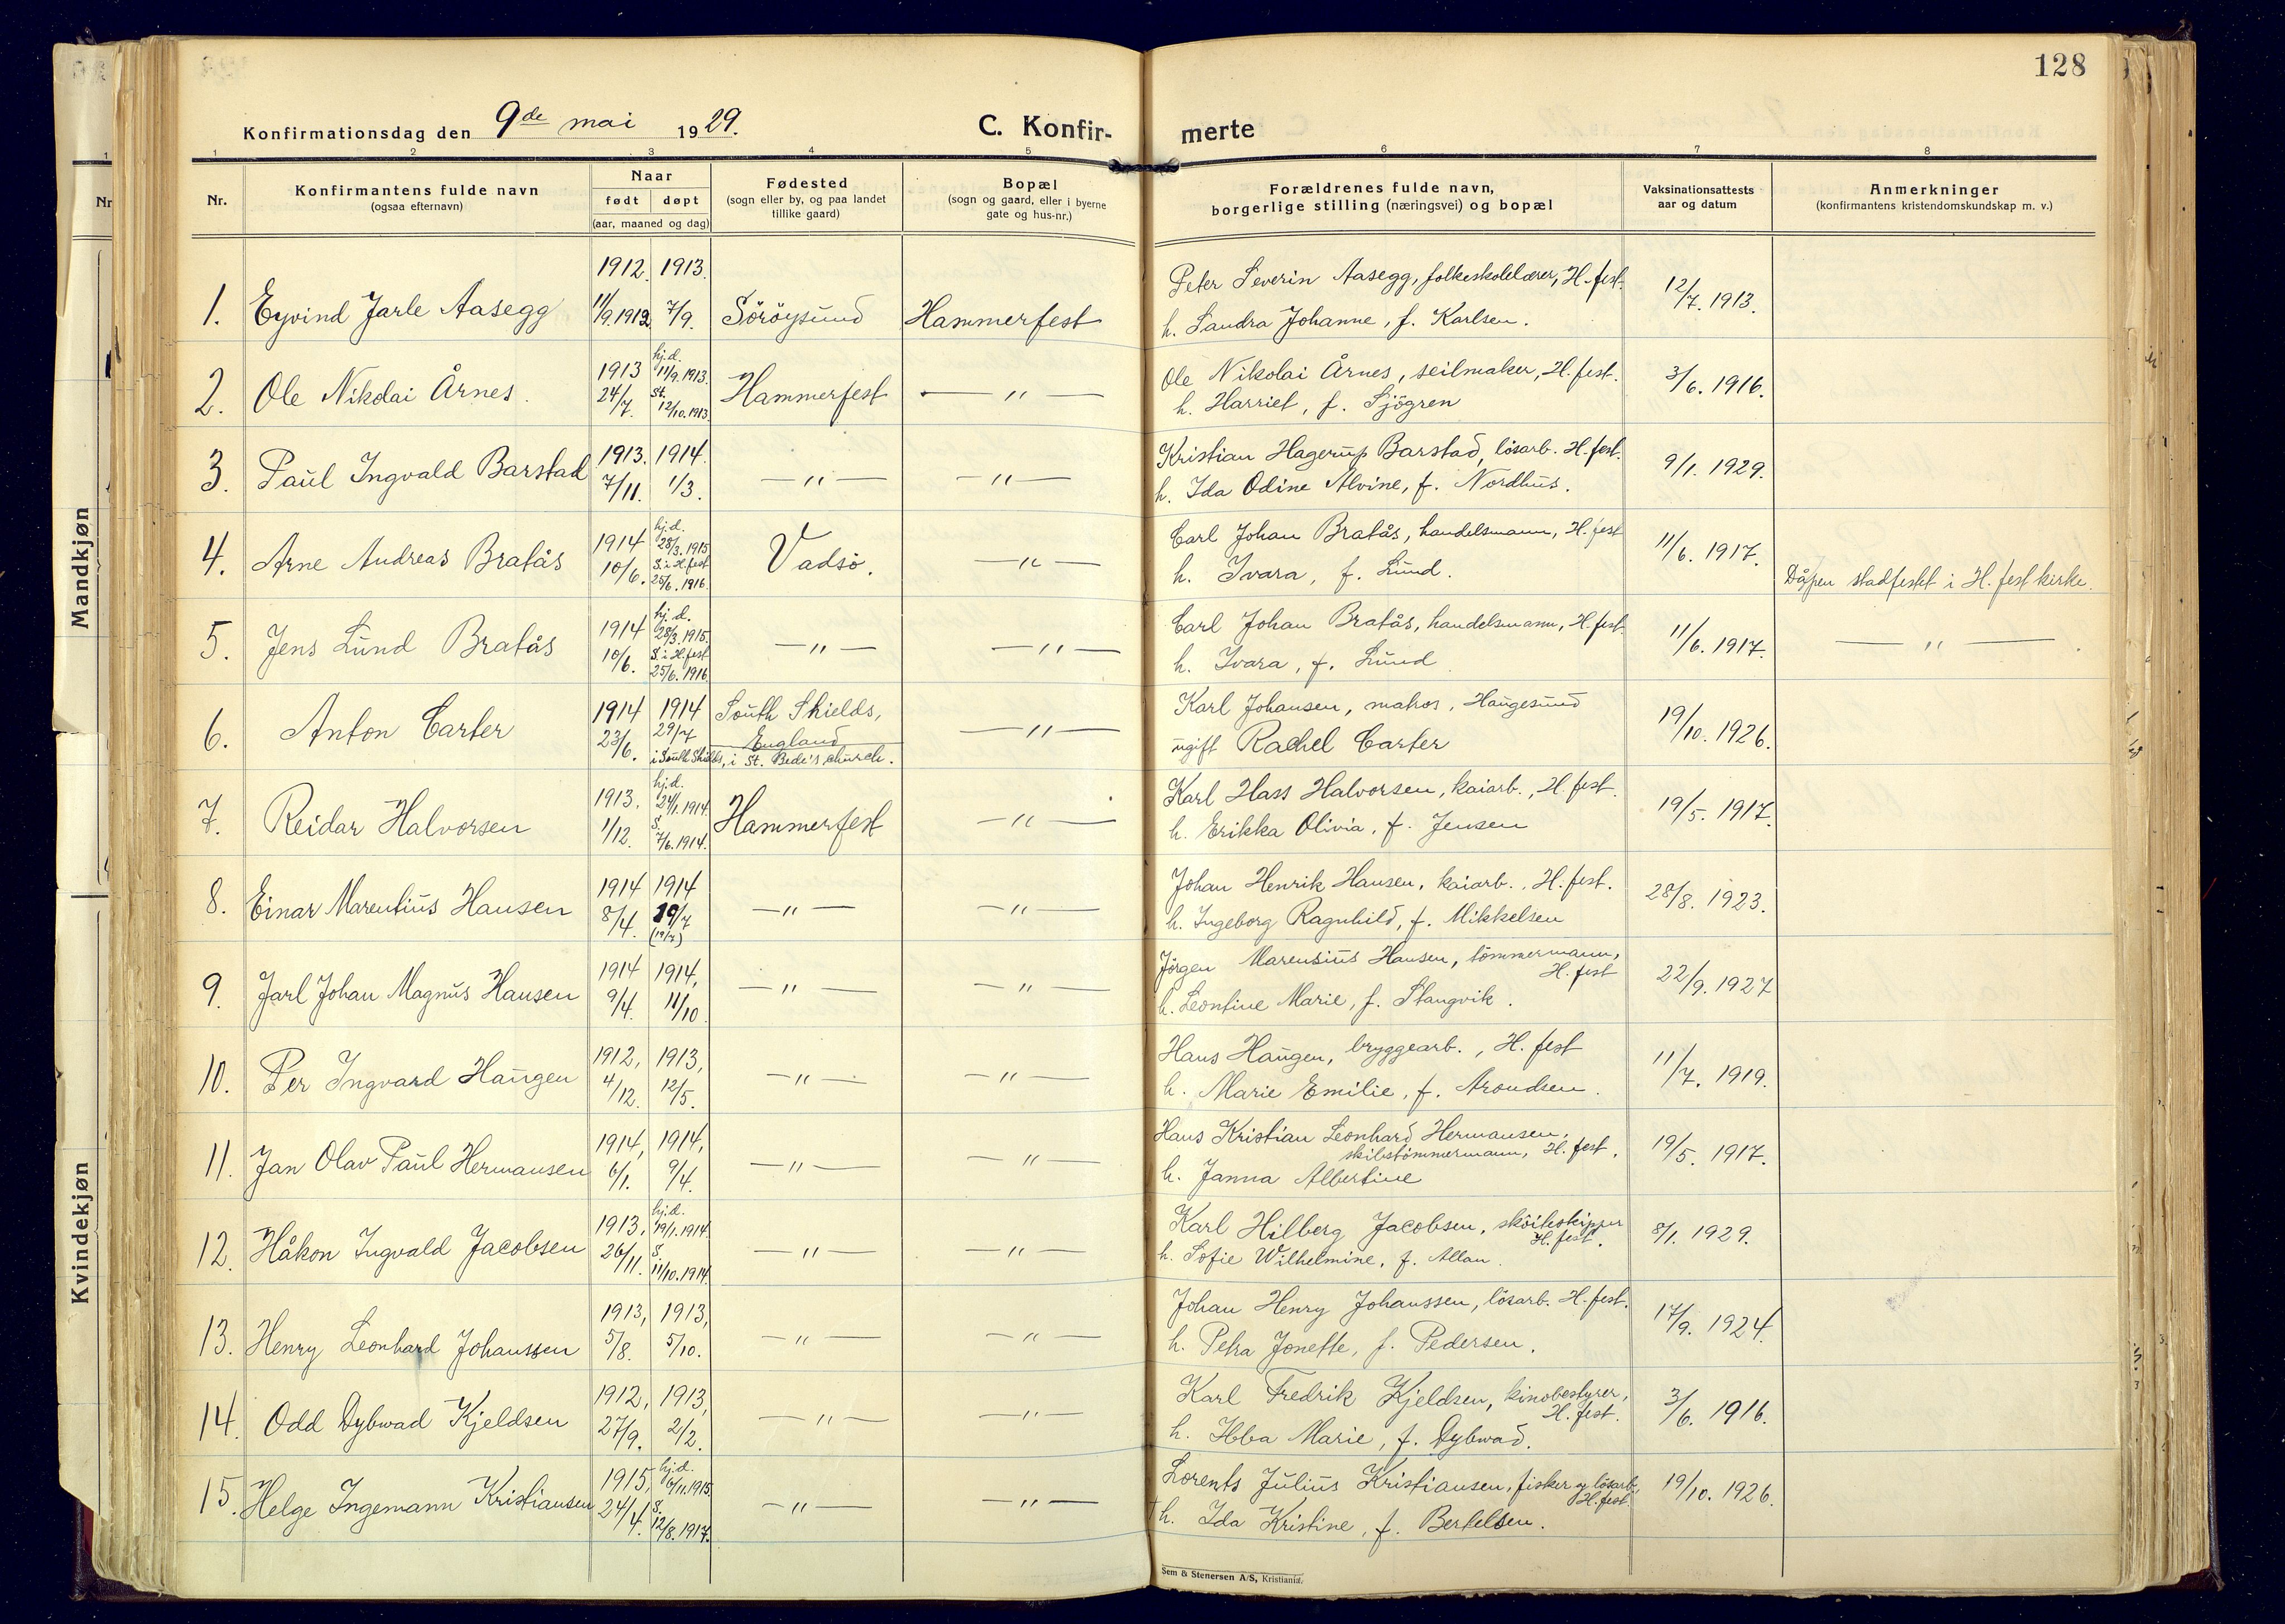 128
Konfirmationsdag den 9de mai 1929.
C. Konfirmerte
1 2 3 4 5 6 7 8
Nr.
Konfirmantens fulde navn
(ogsaa efternavn)
Naar
født døpt
(aar, maaned og dag)
Fødested
(sogn eller by, og paa landet
tillike gaard)
Bopæl
(sogn og gaard, eller i byerne
gate og hus-nr.)
Forældrenes fulde navn,
borgerlige stilling (næringsvei) og bopæl
Vaksinationsattests
aar og datum
Anmerkninger
(konfirmantens kristendomskundskap m. v.)
Nr
Mandkjøn
Kvindekjøn
1912. 1913.
1. Eyvind Jarle Aasegg 11/9.1912 7/9. Söröysund Hammerfest
Peter Severin Aasegg, folkeskolelærer, H.fest.
h. Sandra Johanne, f. Karlsen.
12/7. 1913.
2. Ole Nikolai Årnes. 1913 24/7. hj.d. 11/9.1913. St. 12/10.1913 Hammerfest — " —
Ole Nikolai Årnes, seilmaker, H.fest.
h. Harriet, f. Sjögren
3/6. 1916.
3. Paul Ingvald Barstad 1913. 7/11. 1914. 1/3. — " — — " —
Kristian Hagerup Barstad, lösarb. H.fest.
h. Ida Odine Alvine, f. Nordhus.
9/1. 1929.
4. Arne Andreas Bratås 1914 10/6. hj.d. 28/3.1915 S. i H.fest 25/6.1916. Vadsö. — " —
Carl Johan Bratås, handelsmann, H.fest
h. Ivara, f. Lund.
11/6. 1917.
Dåpen stadfestet i H.fest kirke.
5. Jens Lund Bratås 1914 10/6. hj.d. 28/3.1915. S. i H.fest 25/6.1916. — " — — " —
Carl Johan Bratås, handelsmann, H.fest.
h. Ivara, f. Lund
11/6. 1917.
— " —
6. Anton Carter 1914 23/6. 1914 29/7 i South Shields, i St. Bede's church. South Shields, England — " —
Karl Johansen, matros, Haugesund
ugift Rachel Carter
19/10. 1926.
7. Reidar Halvorsen 1913. 1/12. hj.d. 24/1.1914. S. 7/6.1914. Hammerfest — " —
Karl Hass Halvorsen, kaiarb., H.fest.
h. Erikka Olivia, f. Jensen
19/5. 1917.
8. Einar Marentius Hansen 1914 8/4. 1914 19/7 (19/7) — " — — " —
Johan Henrik Hansen, kaiarb., H.fest.
h. Ingeborg Ragnhild, f. Mikkelsen
28/8. 1923.
9. Jarl Johan Magnus Hansen 1914 9/4. 1914, 11/10. — " — — " —
Jörgen Marensius Hansen, tömmermann,
H.fest
h. Leontine Marie, f. Stangvik.
22/9. 1927
10. Per Ingvard Haugen 1912, 4/12. 1913, 12/5. — " — — " —
Hans Haugen, bryggearb., H.fest
h. Marie Emilie, f. Arondsen.
11/7. 1919.
11. Jan Olav Paul Hermansen 1914, 6/1. 1914, 9/4. — " — — " —
Hans Kristian Leonhard Hermansen,
skibstömmermann, H.fest.
h. Janna Albertine
19/5. 1917.
12. Håkon Ingvald Jacobsen 1913, 26/11. hj.d. 19/1.1914. S. 11/10.1914. — " — — " —
Karl Hilberg Jacobsen, sköiteskipper
H.fest.
h. Sofie Wilhelmine, f. Allan.
8/1. 1929.
13. Henry Leonhard Johanssen 1913, 5/8. 1913, 5/10. — " — — " —
Johan Henry Johanssen, lösarb. H.fest.
h. Petra Jonette, f. Pedersen.
17/9. 1924.
14. Odd Dybwad Kjeldsen 1912, 27/9. 1913, 2/2. — " — — " —
Karl Fredrik Kjeldsen, kinobestyrer,
H.fest.
h. Ebba Marie, f. Dybwad.
3/6. 1916.
15. Helge Ingemann Kristiansen 1915, 24/4. hj.d. 6/11.1915. S. 12/8.1917. — " — — " —
Lorents Julius Kristiansen, fisker og lösarb,
H.fest.
† h. Ida Kristine, f. Bertelsen.
19/10. 1926.
Sem & Stenersen A/S, Kristiania.